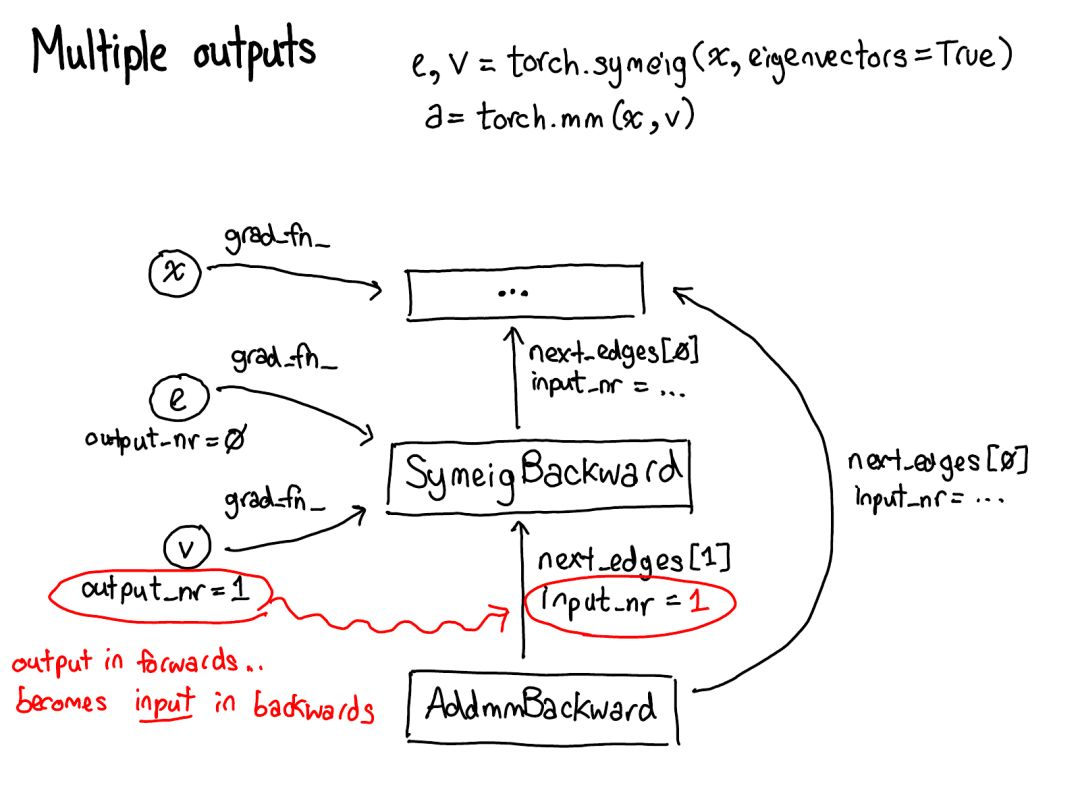 Multiple outputs
e, v = torch.symeig(x, eigenvectors=True)
a = torch.mm(x, v)
grad_fn_
x
...
next_edges[0]
input_nr = ...
grad_fn_
e
output_nr = 0
SymeigBackward
next_edges[0]
input_nr = ...
grad_fn_
v
output_nr = 1
next_edges[1]
input_nr = 1
output in forwards..
becomes input in backwards
AddmmBackward